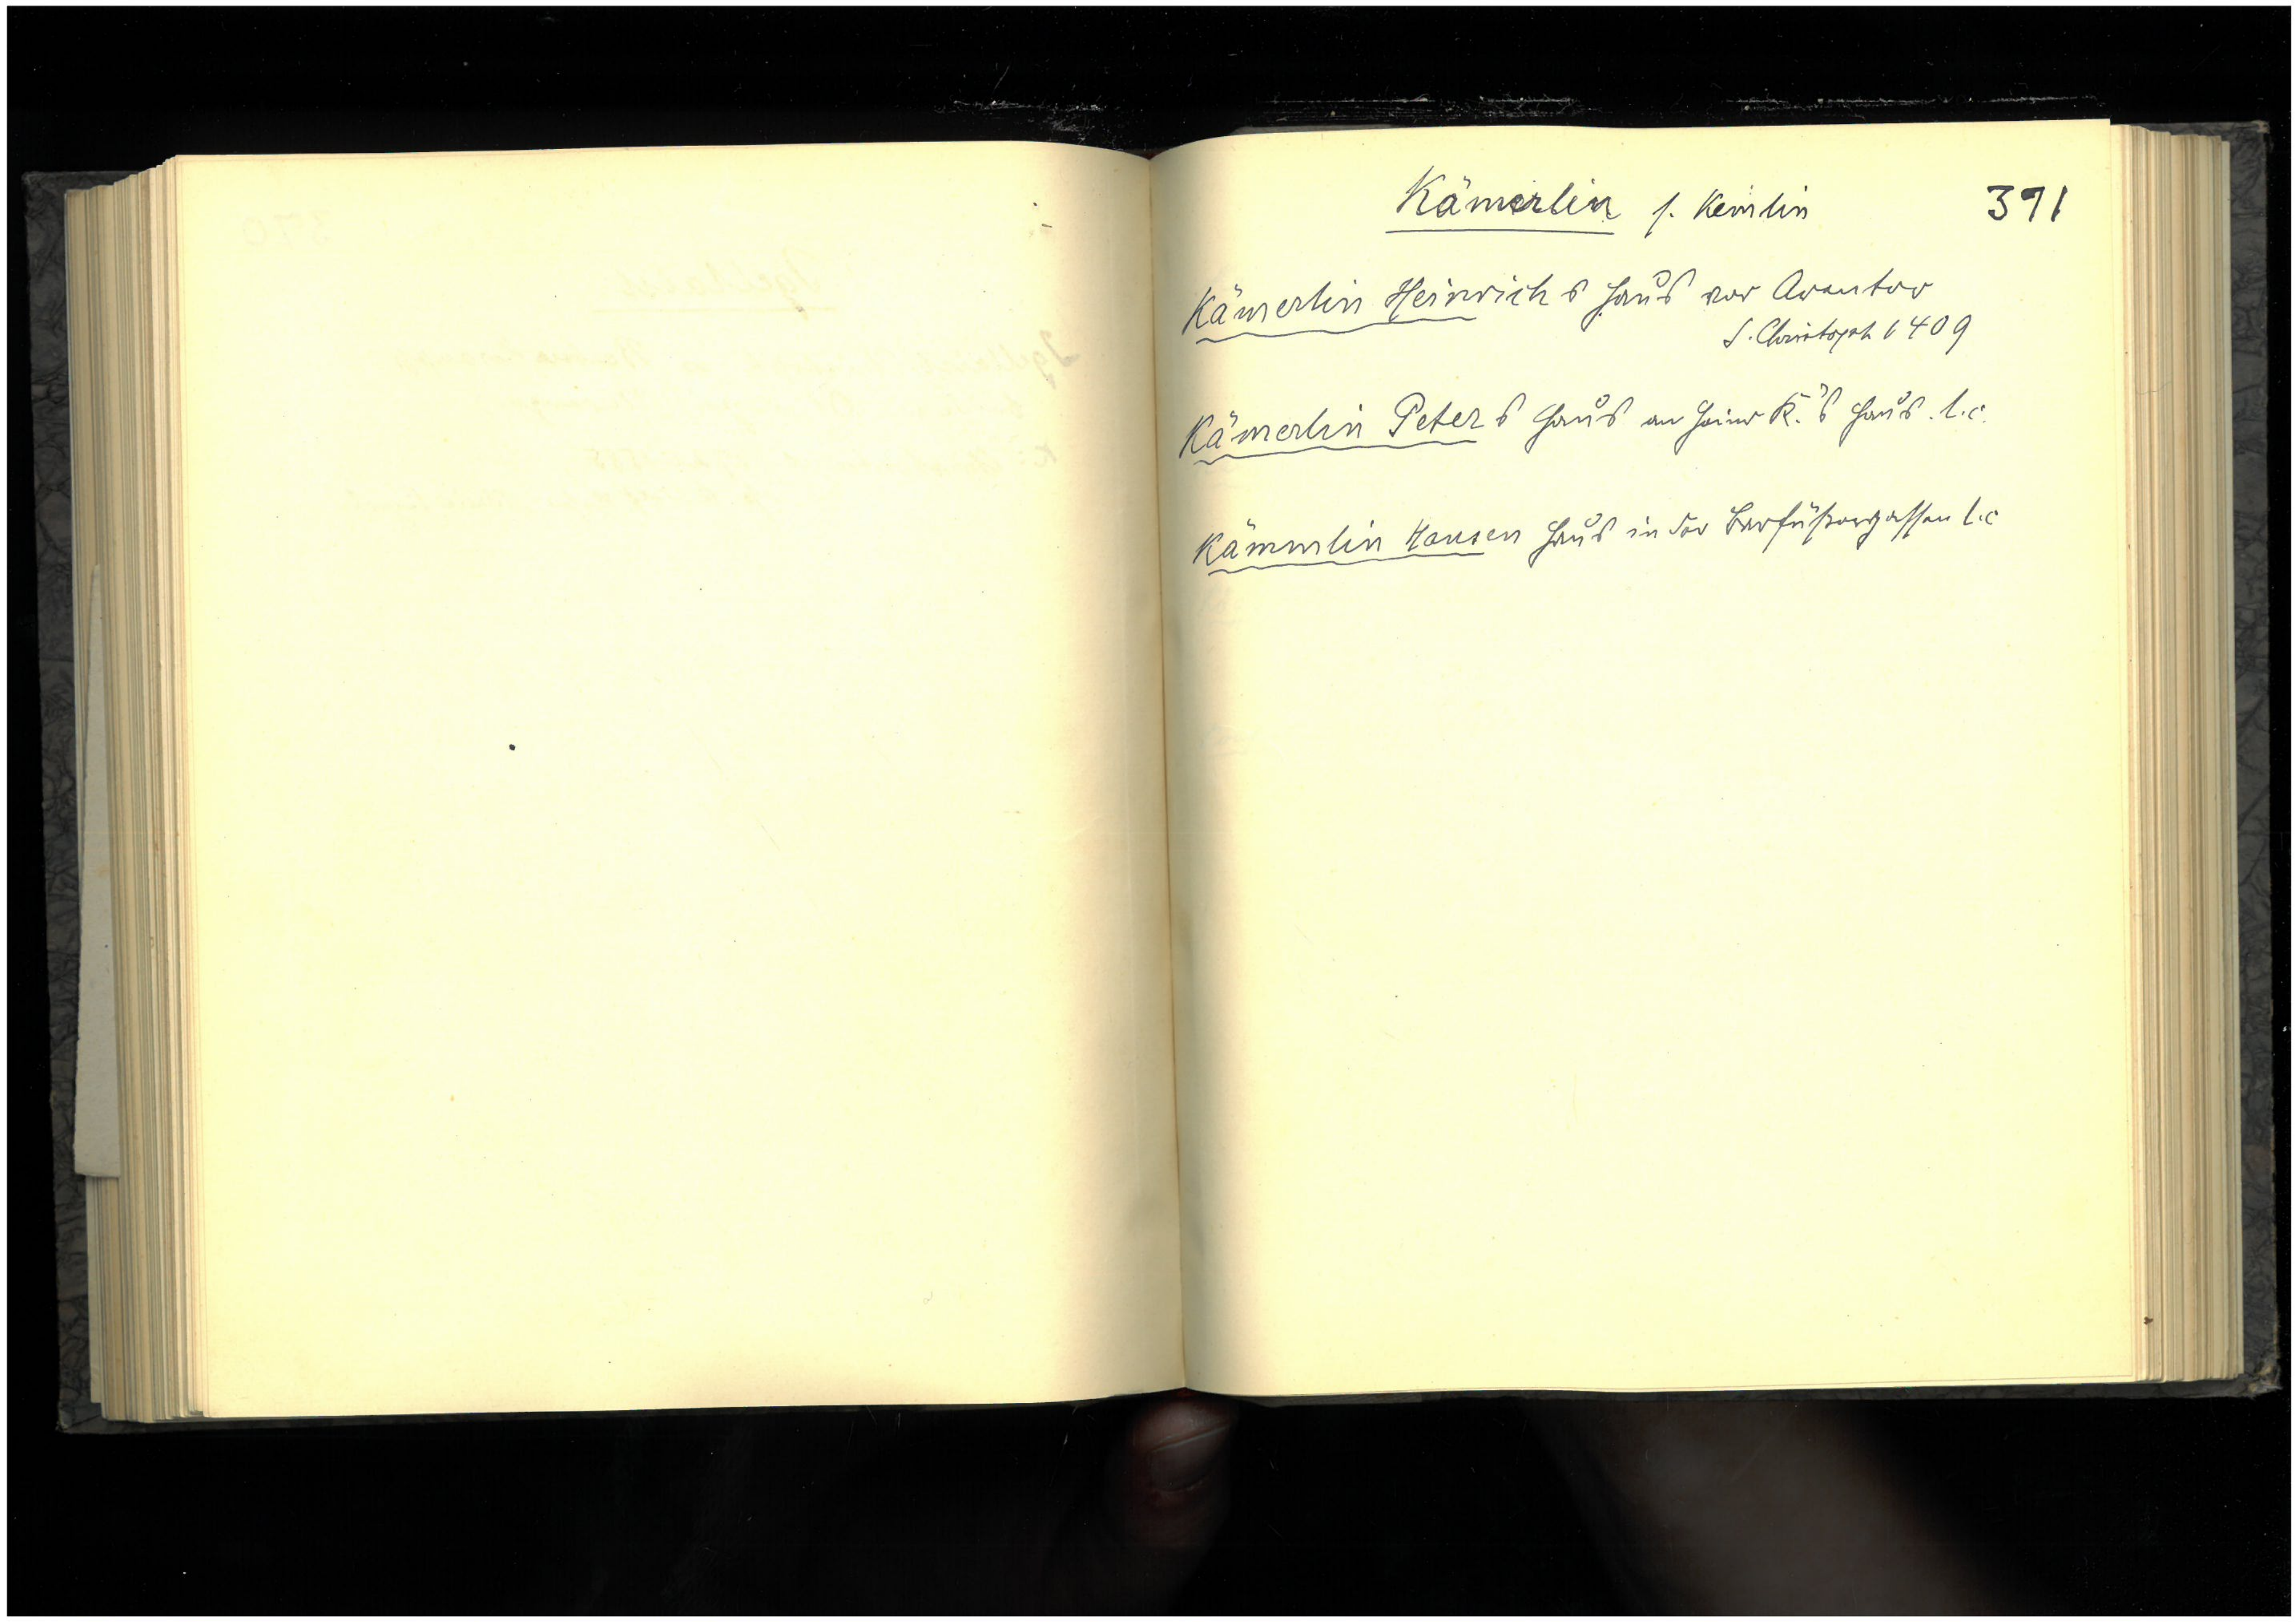 Kämerlin s. Kemlin 371
Kämerlin Heinrichs Haus vor Arentor
S. Christoph 1409
Kämerlin Peters Haus an Heinr K.'s Haus. l.c.
Kämmlin Hansen Haus in der Barfüßergassen l.c